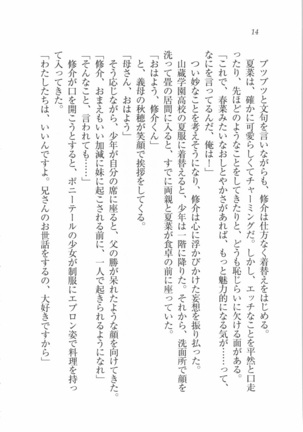 14
ブツブツと文句を言いながらも、修介は仕方なく着替えをはじめる。
夏菜は、確かに可愛らしくてチャーミングだ。しかし、エッチなことを平然と口走
ったり、先ほどのようなことをしてきたりと、どうも恥じらいに欠ける面がある。
「これで、春菜みたいなおしとやかさがあれば、もっと魅力的になる気が……って、
なにを言ってるんだ、俺は！」
つい妙なことを考えそうになり、修介は心に浮かびかけた妄想を振り払った。
山蔵学園高校の夏服に着替えると、少年は一階に降りた。それから、洗面所で顔を
洗って畳の居間に入ると、すでに両親と夏菜が食卓の前に座っていた。
「おはよう、修介くん」
と、義母の秋穂が笑顔で挨拶をしてくる。
「母さん、おはよう」
そう応じながら、少年が自分の席に座ると、父の勝が呆れたような顔を向けてきた。
「修介、おまえもいい加減に妹に起こされる前に、一人で起きられるようになれ」
「そんなこと、言われても……」
修介が口を開こうとすると、ポニーテールの少女が制服にエプロン姿で料理を持っ
て入ってきた。
「わたしたちは、いいんですよ。兄さんのお世話をするの、大好きですから」